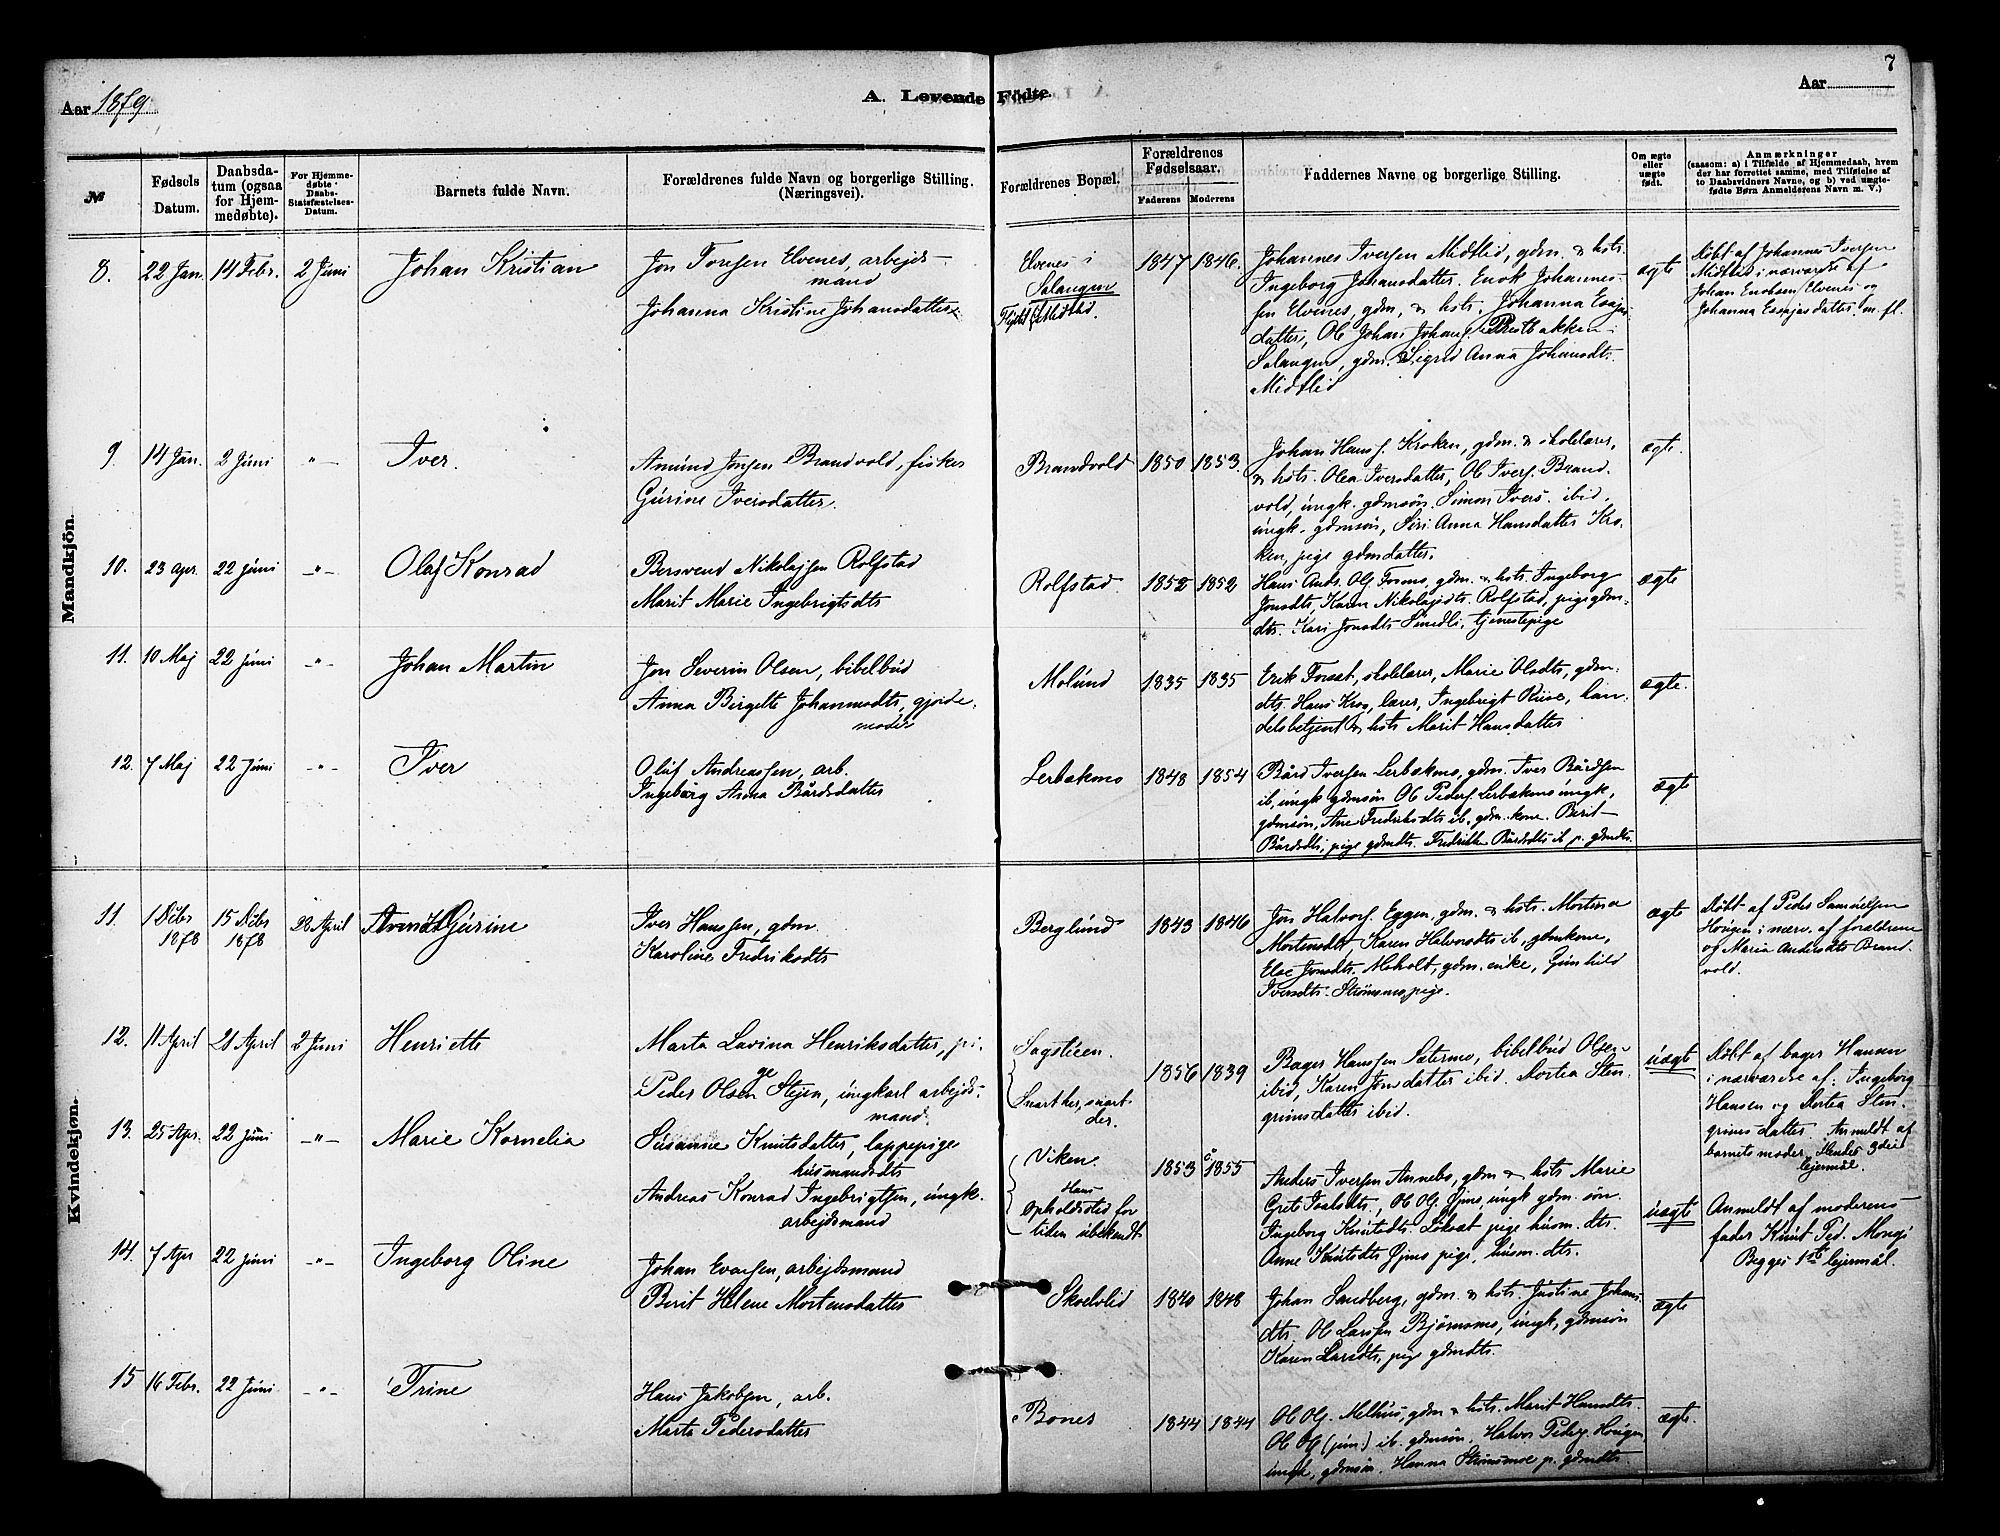 Aar 1879
A. Levende Fødte.
Aar
7
№
Fødsels Datum.
Daabsdatum (ogsaa for Hjemmedøbte).
For Hjemmedøbte Daabs-Stadfæstelses-Datum.
Barnets fulde Navn.
Forældrenes fulde Navn og borgerlige Stilling. (Næringsvei).
Forældrenes Bopæl.
Forældrenes Fødselsaar.
Faderens
Moderens
Faddernes Navne og borgerlige Stilling.
Om ægte eller uægte født.
Anmærkninger
(saasom: a) i Tilfælde af Hjemmedaab, hvem der har forrettet samme, med Tilføielse af to Daabsvidners Navne, og b) ved uægtefødte Børn Anmelderens Navn m. V.)
Mandkjön.
8. 22 Jan. 14 Febr. 2 Juni Johan Kristian
Jon Tonsen Elvenes, arbejds-
mand
Johanna Kristine Johansdatter
Elvenes i
Salangen
Midtlid.
1847 1846.
Johannes Iversen Midtlid, gdm. & hst.
Ingeborg Johansdatter. Enok Johannes-
sen Elvenes, gdm, & hst. Johanna Esajas
datter, Ol Johan Johans. Prestbakken i
Salangen, gdm. Sigrid Anna Johansdt.
Midtlid
ægte
Døbt af Johannes Iversen
Midtlid i nærværelse af
Johan Enoksen Elvenes og
Johanna Esajasdatter. m. fl.
9. 14 Jan. 2 Juni -"- Iver.
Amund Jonsen Brandvold, fisker
Gurine Iversdatter.
Brandvold
1850 1853.
Johan Hans. Kroken, gdm. & skolelærer,
& hst. Olea Iversdatter, Ol Ivers. Brand-
vold, ungk. gdmsøn, Simon Ivers. ibid,
ungk. gdmsøn, Siri Anna Hansdatter Kro-
ken, pige gdmdatter.
ægte.
10. 23 Apr. 22 juni -"- Olaf Konrad
Bersvend Nikolajsen Rolfstad
Marit Marie Ingebrigtsdtr
Rolfstad
1852 1852
Hans Ands. Olj Fosmo, gdm. & hst. Ingeborg
Jonsdt, Karen Nikolajsdt. Rolfstad, pige gdm-
dt. Kari Jonsdt Sundli, tjenestepige
ægte
11. 10 Maj 22 juni -"- Johan Martin
Jon Severin Olsen, bibelbud
Anna Birgitte Johannesdt, gjorde-
moder
Molund
1835 1835
Erik Forset, skolelærer, Marie Olsdt, gdm-
dt. Hans Krog, lærer, Ingebrigt Riise, han-
delsbetjent & hst Marit Hansdatter
ægte.
12. 7 Maj 22 Juni -"- Iver
Oluf Andreassen, arb.
Ingeborg Anna Bårdsdatter
Lerbakmo
1848 1854
Bård Iversen Lerbakmo, gdm. Iver Bårdsen
ib, ungk gdmsøn Ol Peders. Lerbakmo ungk,
gdmsøn, Ane Fredriksdt ib. gdm. kone. Berit
Bårdsdt, pige gdmdt. Fredrikke Bårdsdt ib p. gdmdt.
ægte
Kvindekjøn.
11. 1 Debr 1878 15 Debr 1878 28 April Gurine
Iver Hanssen, gdm.
Karoline Fredriksdtr
Berglund
1843 1846
Jon Halvors. Eggen, gdm. & hst. Mortena
Mortensdt, Karen Halvorsdt ib, gdmkone,
Else Jonsdt. Moholt, gdm. enke, Gunhild
Iversdt. Strømsmo, pige.
ægte
Døbt af Peder Samuelsen
Haugen i nærv. af forældrene
og Maria Andersdt Brand-
vold.
12. 11 April 21 April 2 Juni Henriette
Marta Lavina Henriksdatter, pi-
ge
Peder Olsen Stejen, ungkarl arbejds-
mand.
Sagstuen.
1856 1839
Bager Hanssen Sætermo, bibelbud Olsen
ibid, Karen Jonsdatter ibid. Dortea Sten-
grimsdatter ibid.
uægte
Døbt af bager Hansen
i nærværelse af: Ingeborg
Hansen og Dortea Sten-
grimsdatter. Anmeldt af
barnets moder. Hendes 3die
lejermål.
13. 25 Apr. 22 juni -"- Marie Kornelia
Susanne Knutsdatter, lappepige
husmandsdt
Andreas Konrad Ingebrigtsen, ungk.
arbejdsmand
Viken.
Hans
opholdssted for
tiden ubekendt
1853 1855
Anders Iversen Annebo, gdm & hst Marie
Grete Isaksdt., Ol Olj Gjms, ungk gdm. søn.
Ingeborg Knutsdt. Løksæt pige husm. dt.
Anne Knutsdt Gjms pige, husm. dt.
uægte
Anmeldt af moderens
fader Knut Ped. Mongi
Begges 1ste lejermål.
14. 7 Apr 22 juni -"- Ingeborg Oline
Johan Evensen, arbejdsmand
Berit Helene Mortensdatter
Skoelvlid
1840 1848
Johan Sandberg, gdm. & hst. Justine Johans-
dt. Ol Larssen Bjørnsmo, ungk, gdmsøn
Karen Larsdt, pige gdmdt.
ægte
15 16 Febr. 22 Juni -"- Trine
Hans Jakobsen, arb.
Marta Pedersdatter
Bones
1844 1844
Ol Olj. Melhus, gdm & hst. Marit Hansdt.
Ol Olj (jun) ib. gdmsøn. Halvor Peders. Haugen
ungk, gdmsøn. Hanna Strømsmoe p. gdmdt.
ægte.